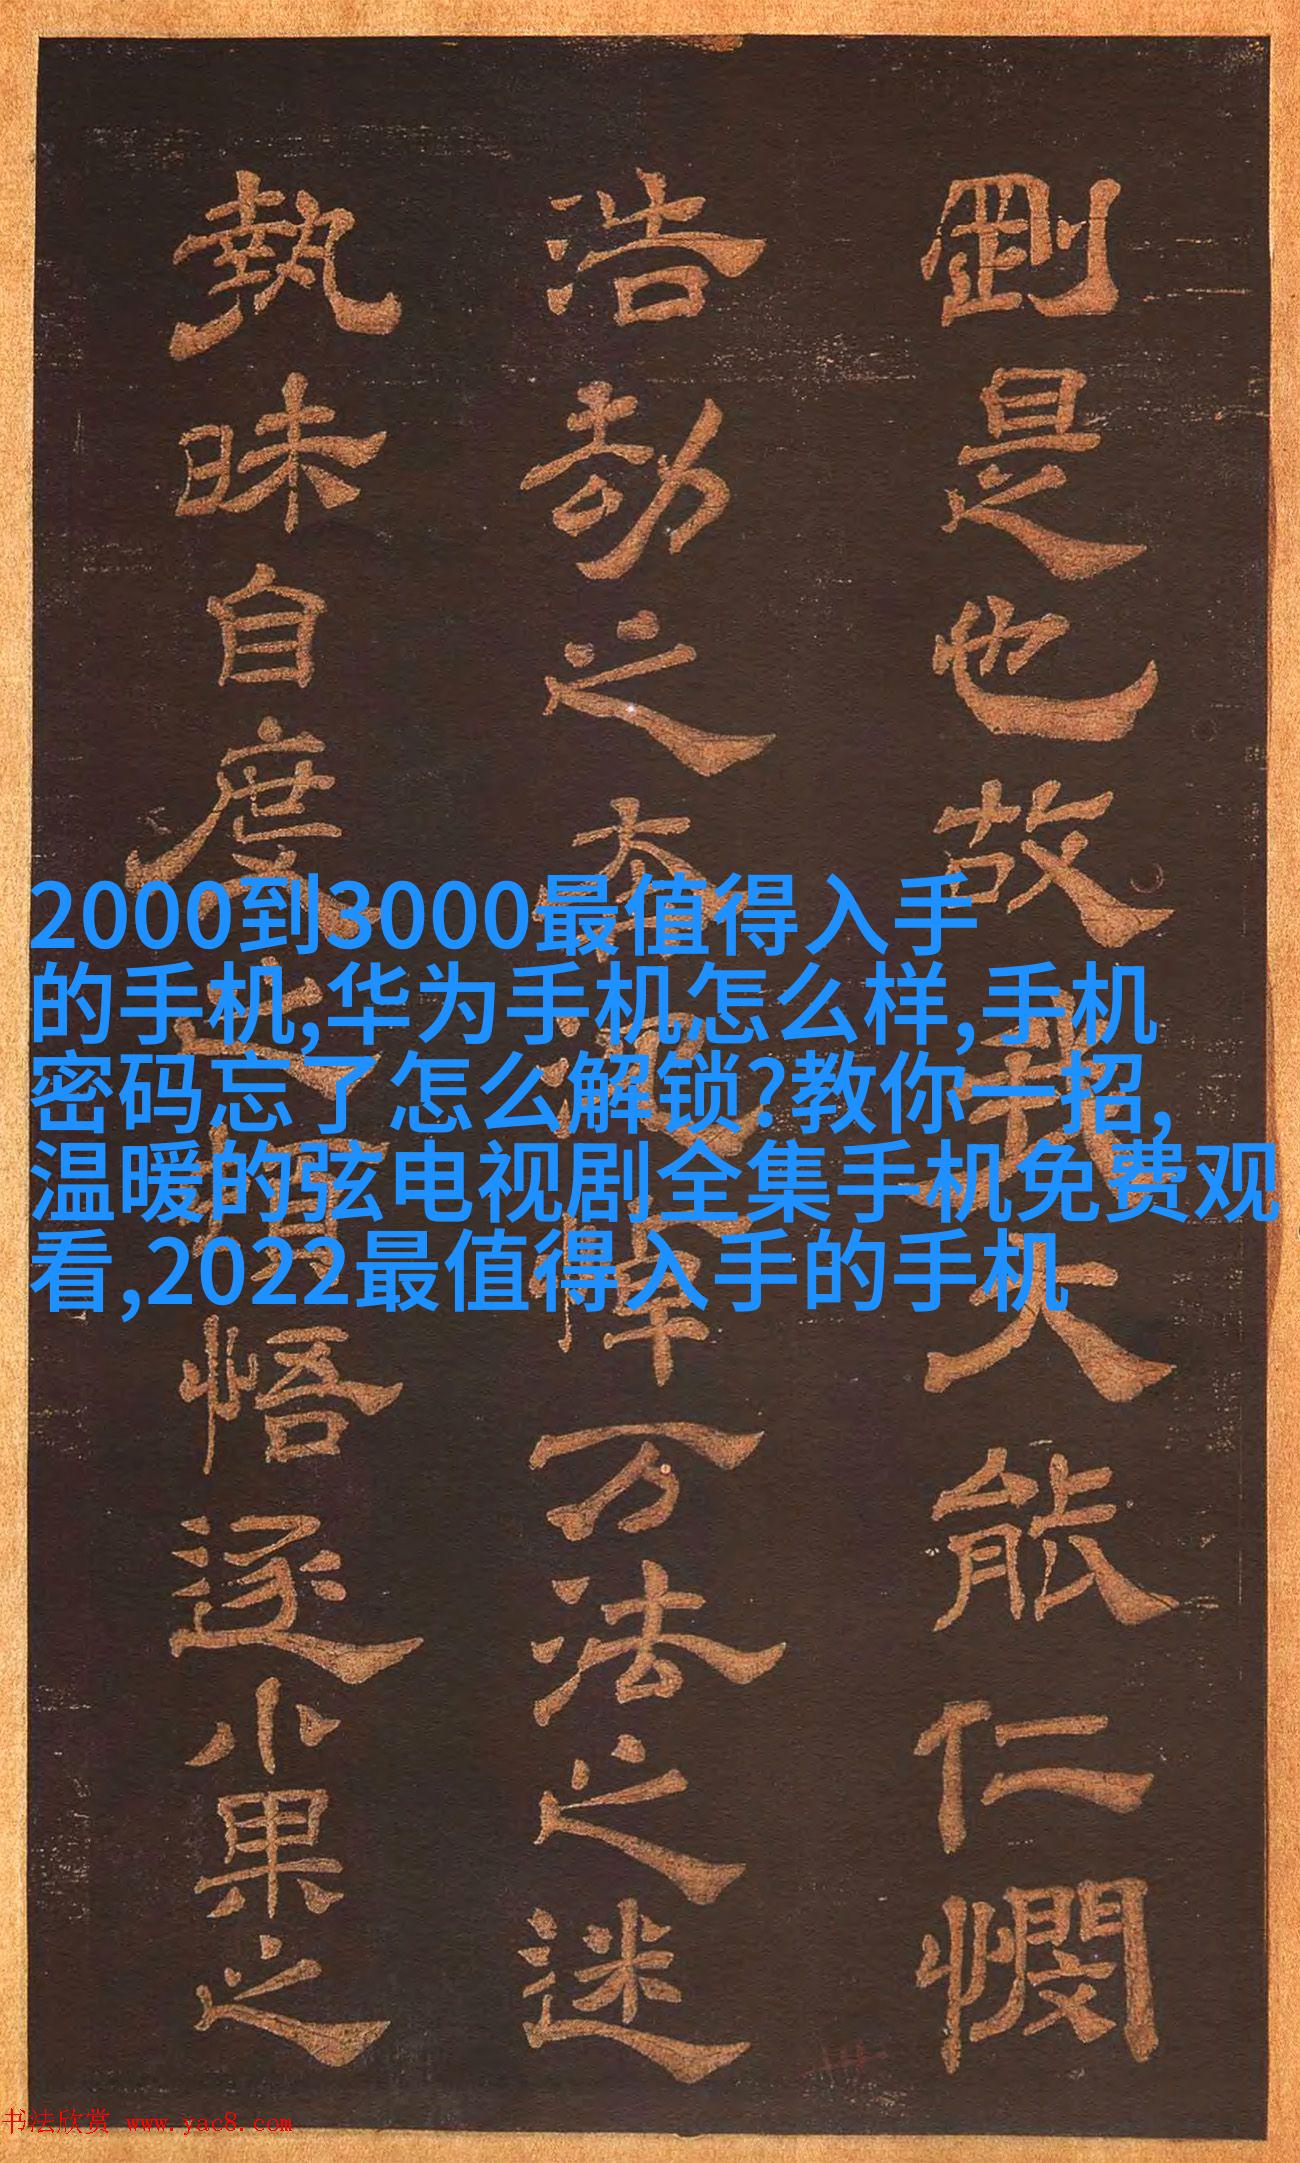 剛是也故我大能仁憫
浩劫之悼万法之迷
執昧自度之悟逐小果之
2000到3000最值得入手
的手机,华为手机怎么样,手机
密码忘了怎么解锁?教你一招,
温暖的弦电视剧全集手机免费观
看,2022最值得入手的手机
书法欣赏 www.yac8.com